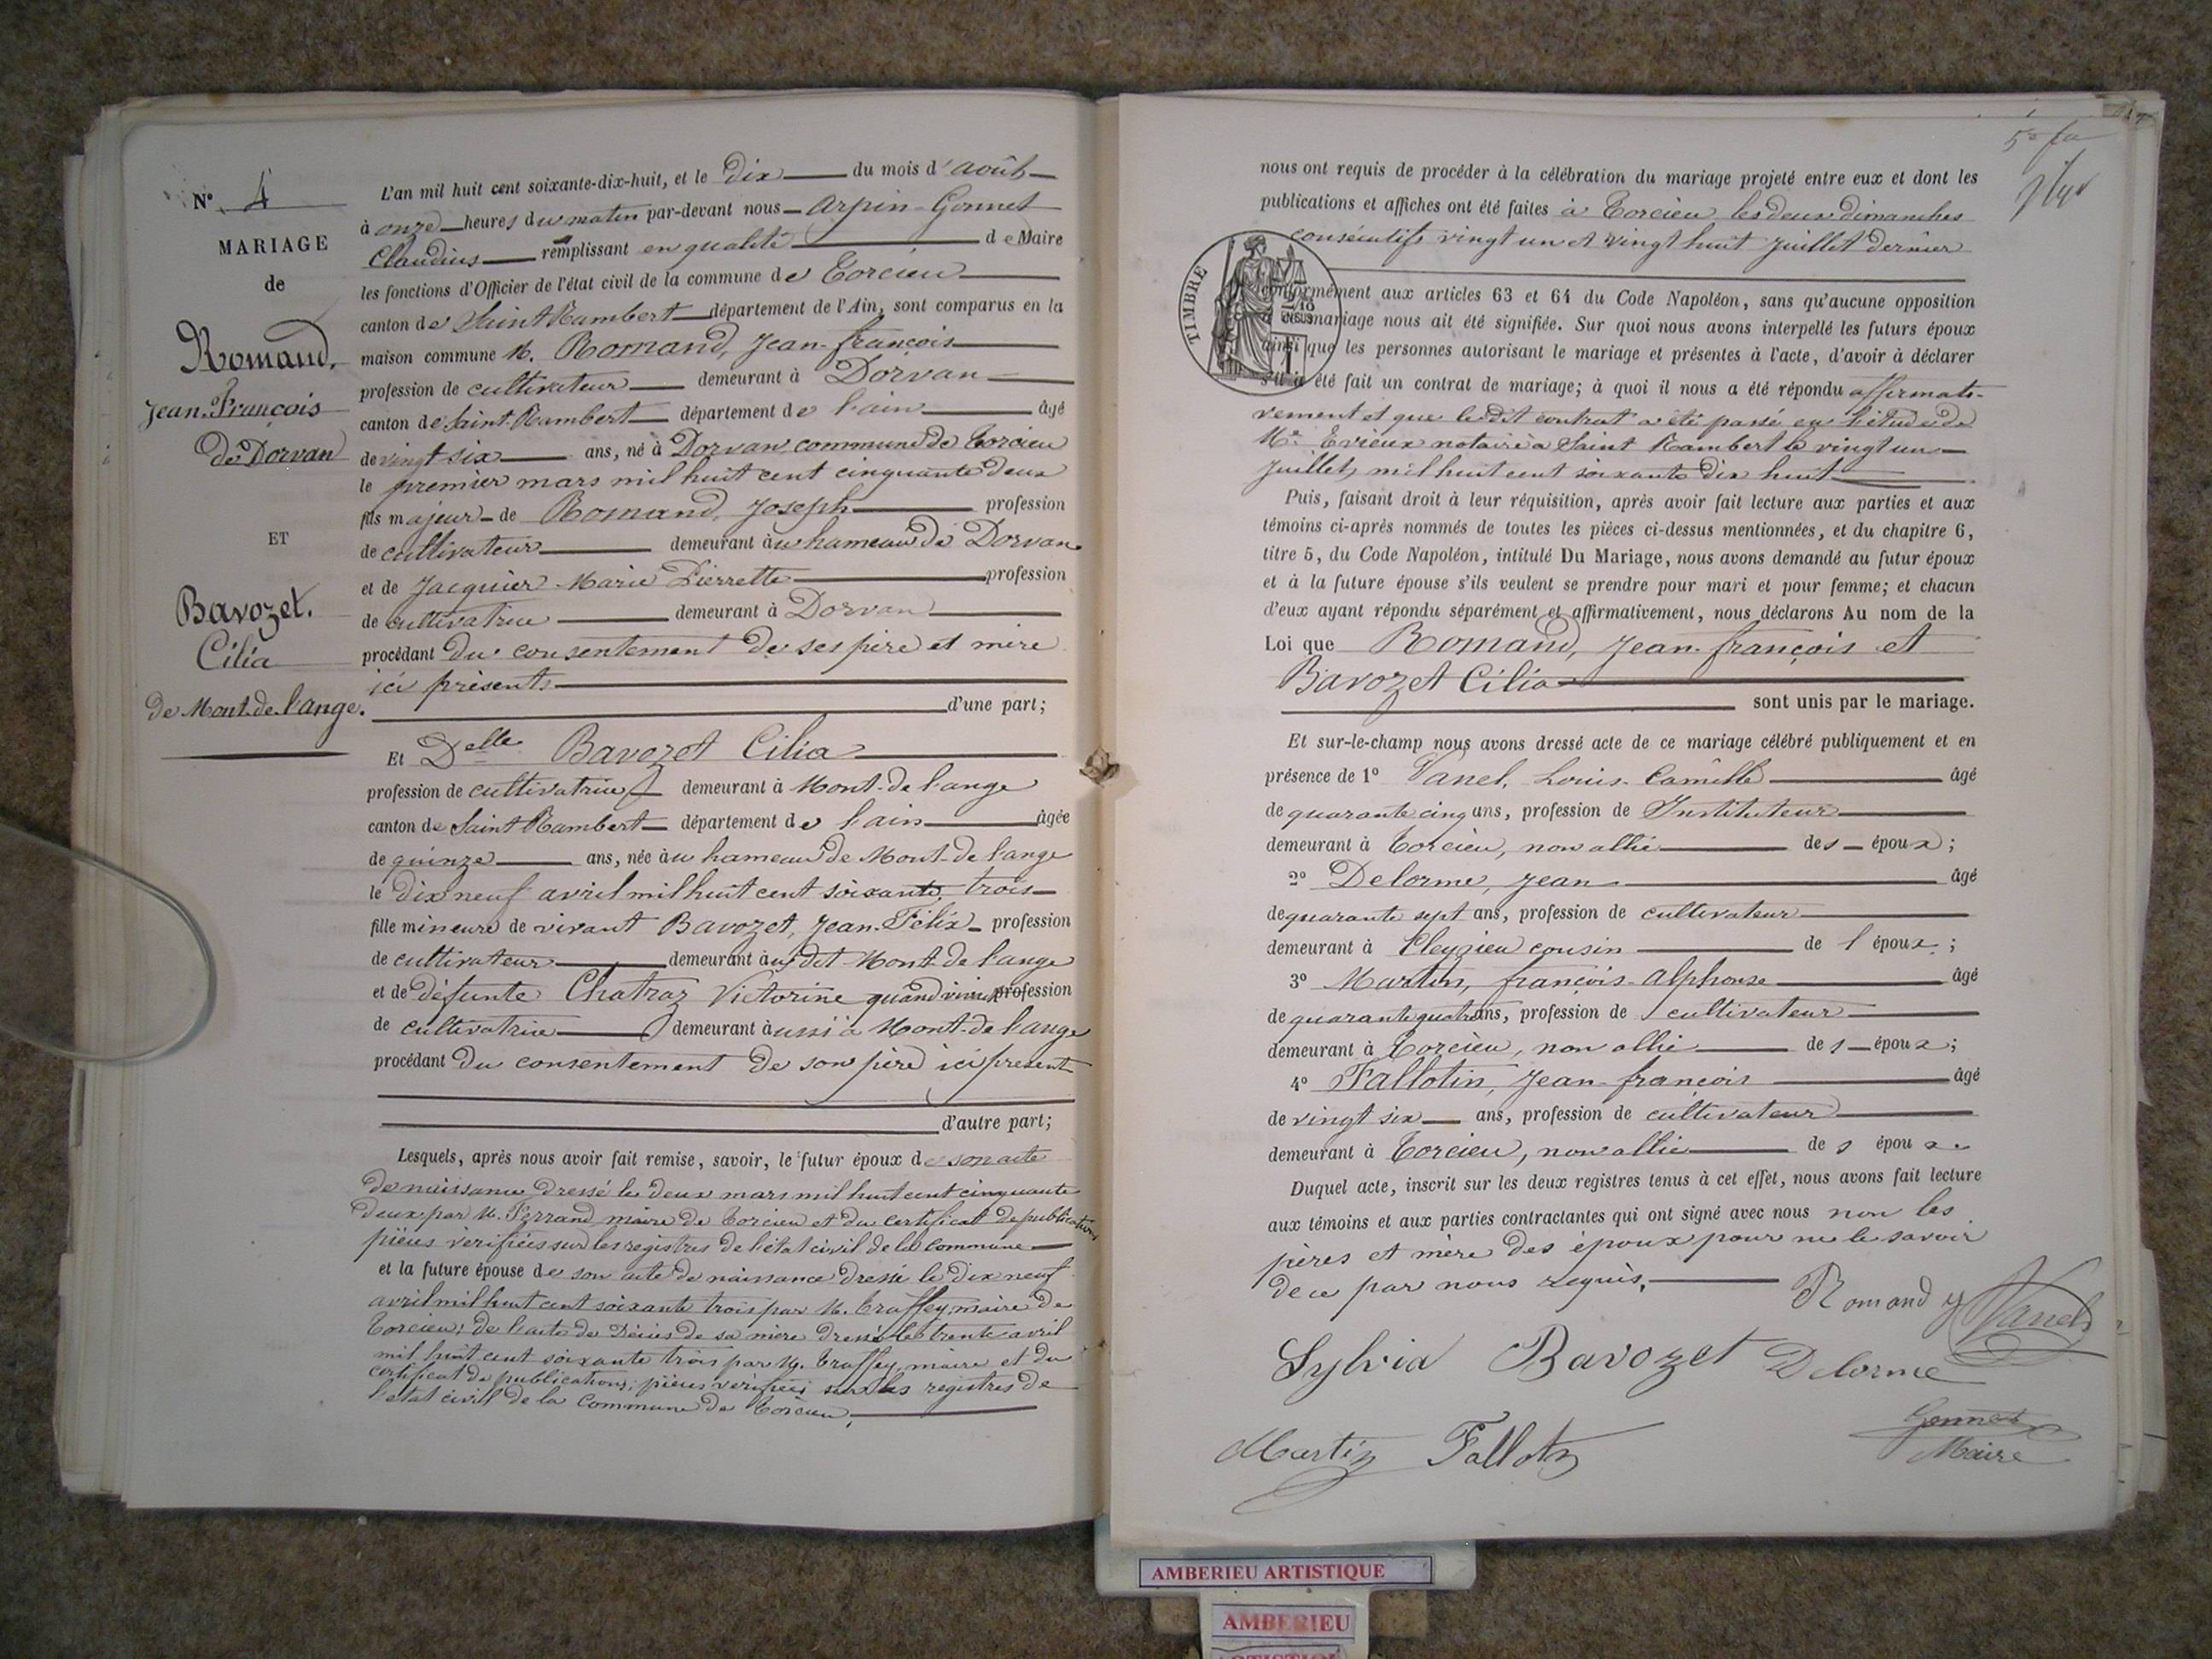 N° 4
MARIAGE
de
Romand,
Jean-François
de Dorvan
ET
Bavozet.
Cilia
de Mont-de-l'ange.
L'an mil huit cent soixante-dix-huit, et le Dix du mois d'août
à onze heures du matin par-devant nous Arpin-Gonnet
Claudius remplissant en qualité de Maire
les fonctions d'Officier de l'état civil de la commune de Torcieu
canton de Saint Rambert département de l'Ain, sont comparus en la
maison commune M. Romand, Jean-françois
profession de cultivateur demeurant à Dorvan
canton de Saint-Rambert département de l'ain âgé
de vingt six ans, né à Dorvan commune de Torcieu
le premier mars mil huit cent cinquante deux
fils majeur de Romand, Joseph profession
de cultivateur demeurant au hameau de Dorvan
et de Jacquier Marie Pierrette profession
de cultivatrice demeurant à Dorvan
procédant du consentement de ses père et mère
ici présents
d'une part;
Et Delle Bavozet Cilia
profession de cultivatrice demeurant à Mont-de-l'ange
canton de Saint Rambert département de l'ain âgée
de quinze ans, née au hameau de Mont-de-l'ange
le dix neuf avril mil huit cent soixante trois
fille mineure de vivant Bavozet, Jean-Félix profession
de cultivateur demeurant au dit Mont-de-l'ange
et de défunte Chatraz Victorine quand vivait profession
de cultivatrice demeurant aussi à Mont-de-l'ange
procédant du consentement de son père ici présent
d'autre part;
Lesquels, après nous avoir fait remise, savoir, le futur époux de son acte
de naissance dressé le deux mars mil huit cent cinquante
deux par M. Ferrand maire de Torcieu et du certificat de publications
pièces vérifiées sur les registres de l'état civil de la commune
et la future épouse de son acte de naissance dressé le dix neuf
avril mil huit cent soixante trois par M. Truffey, maire de
Torcieu; de l'acte de Décès de sa mère dressé le trente avril
mil huit cent soixante trois par M. Truffey, maire et du
certificat de publications; pièces vérifiées sur les registres de
l'état civil de la Commune de Torcieu.
nous ont requis de procéder à la célébration du mariage projeté entre eux et dont les
publications et affiches ont été faites à Torcieu les deux dimanches
consécutifs vingt un et vingt huit juillet dernier
TIMBRE
conformément aux articles 63 et 64 du Code Napoléon, sans qu'aucune opposition
à ce mariage nous ait été signifiée. Sur quoi nous avons interpellé les futurs époux
ainsi que les personnes autorisant le mariage et présentes à l'acte, d'avoir à déclarer
s'il a été fait un contrat de mariage; à quoi il nous a été répondu affirmati-
vement et que le dit contrat a été passé en l'étude de
Me Evieux notaire à Saint Rambert le vingt un
juillet mil huit cent soixante dix huit
Puis, faisant droit à leur réquisition, après avoir fait lecture aux parties et aux
témoins ci-après nommés de toutes les pièces ci-dessus mentionnées, et du chapitre 6,
titre 5, du Code Napoléon, intitulé Du Mariage, nous avons demandé au futur époux
et à la future épouse s'ils veulent se prendre pour mari et pour femme; et chacun
d'eux ayant répondu séparément et affirmativement, nous déclarons Au nom de la
Loi que Romand, Jean-françois et
Bavozet Cilia
sont unis par le mariage.
Et sur-le-champ nous avons dressé acte de ce mariage célébré publiquement et en
présence de 1° Vanel, Louis-Camille âgé
de quarante cinq ans, profession de Instituteur
demeurant à Torcieu, non allié des époux;
2° Delorme, Jean âgé
de quarante sept ans, profession de cultivateur
demeurant à Cleyzieu cousin de l'époux;
3° Martin, françois-Alphonse âgé
de quarante quatre ans, profession de cultivateur
demeurant à Torcieu, non allié des époux;
4° Fallotin, Jean-françois âgé
de vingt six ans, profession de cultivateur
demeurant à Torcieu, non allié des époux.
Duquel acte, inscrit sur les deux registres tenus à cet effet, nous avons fait lecture
aux témoins et aux parties contractantes qui ont signé avec nous non les
pères et mère des époux pour ne le savoir
de ce par nous requis.
Romand J Vanel
Sylvia Bavozet Delorme
Martin Fallotin
Gonnet
Maire
AMBERIEU ARTISTIQUE
AMBERIEU
ARTISTIQUE